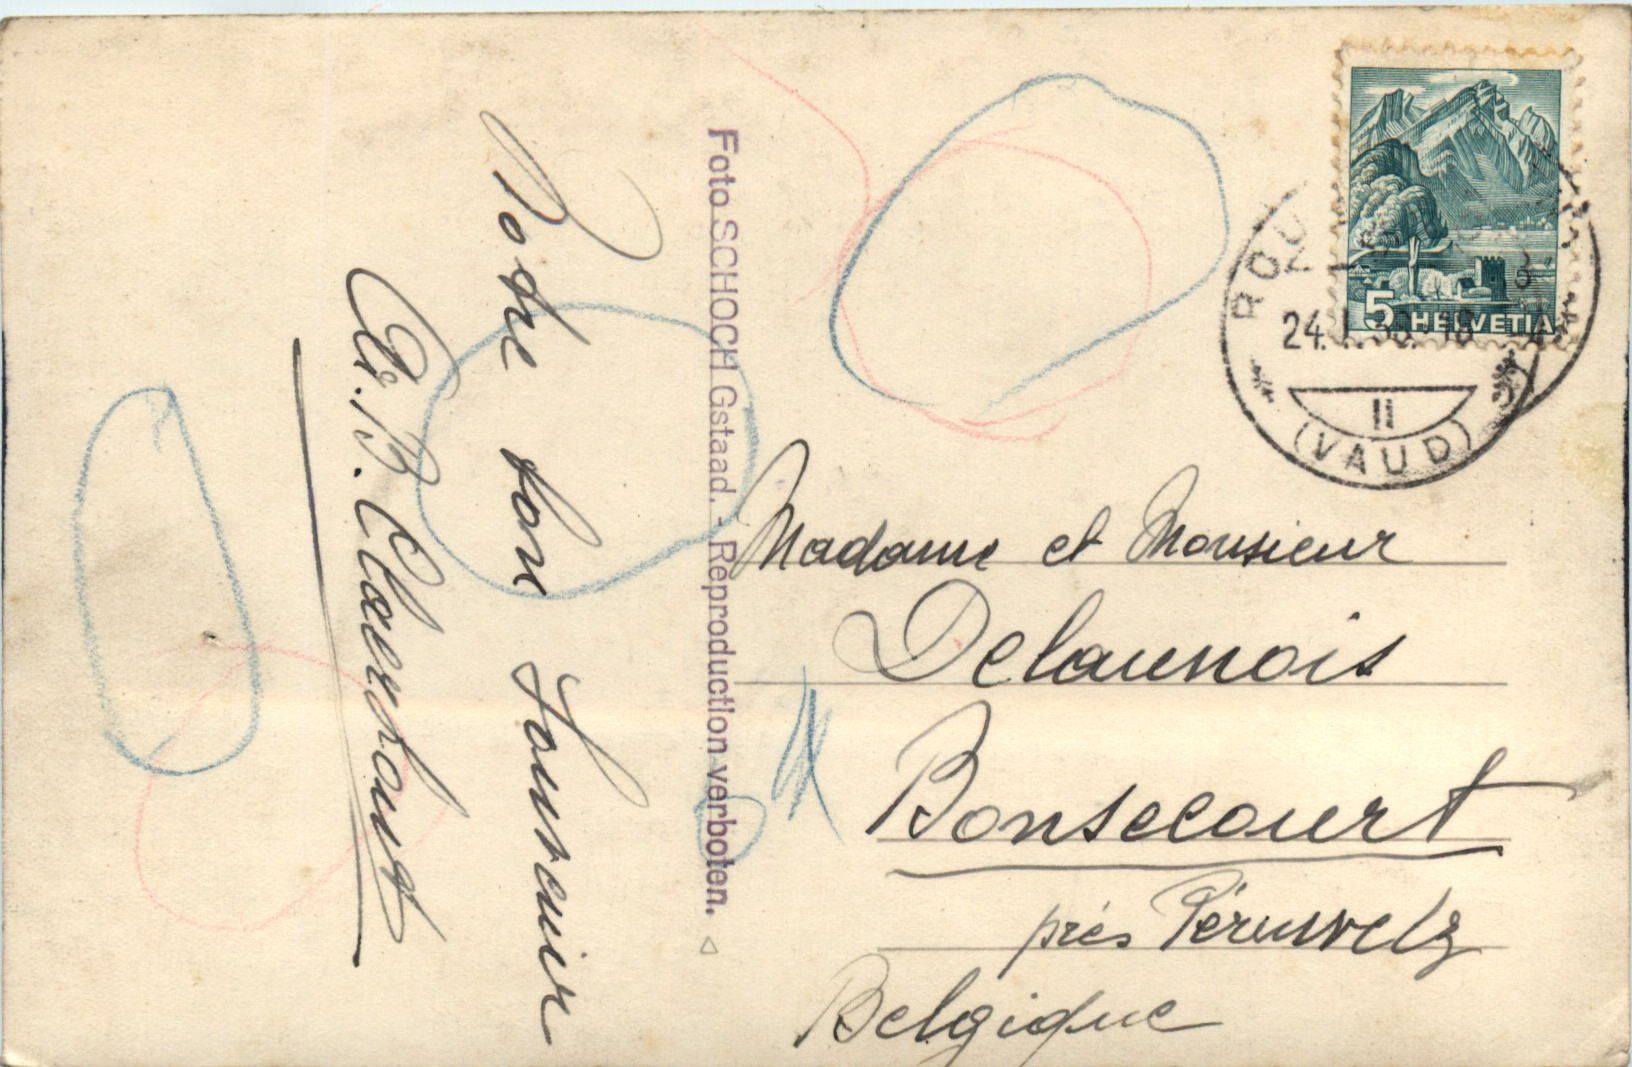 Notre bon Souvenir
Foto SCHOCH Gstaad. - Reproduction verboten.
5 HELVETIA
ROU
24.
II
(VAUD)
Madame et Monsieur
Delaunois
Bonsecourt
près Péruwelz
Belgique